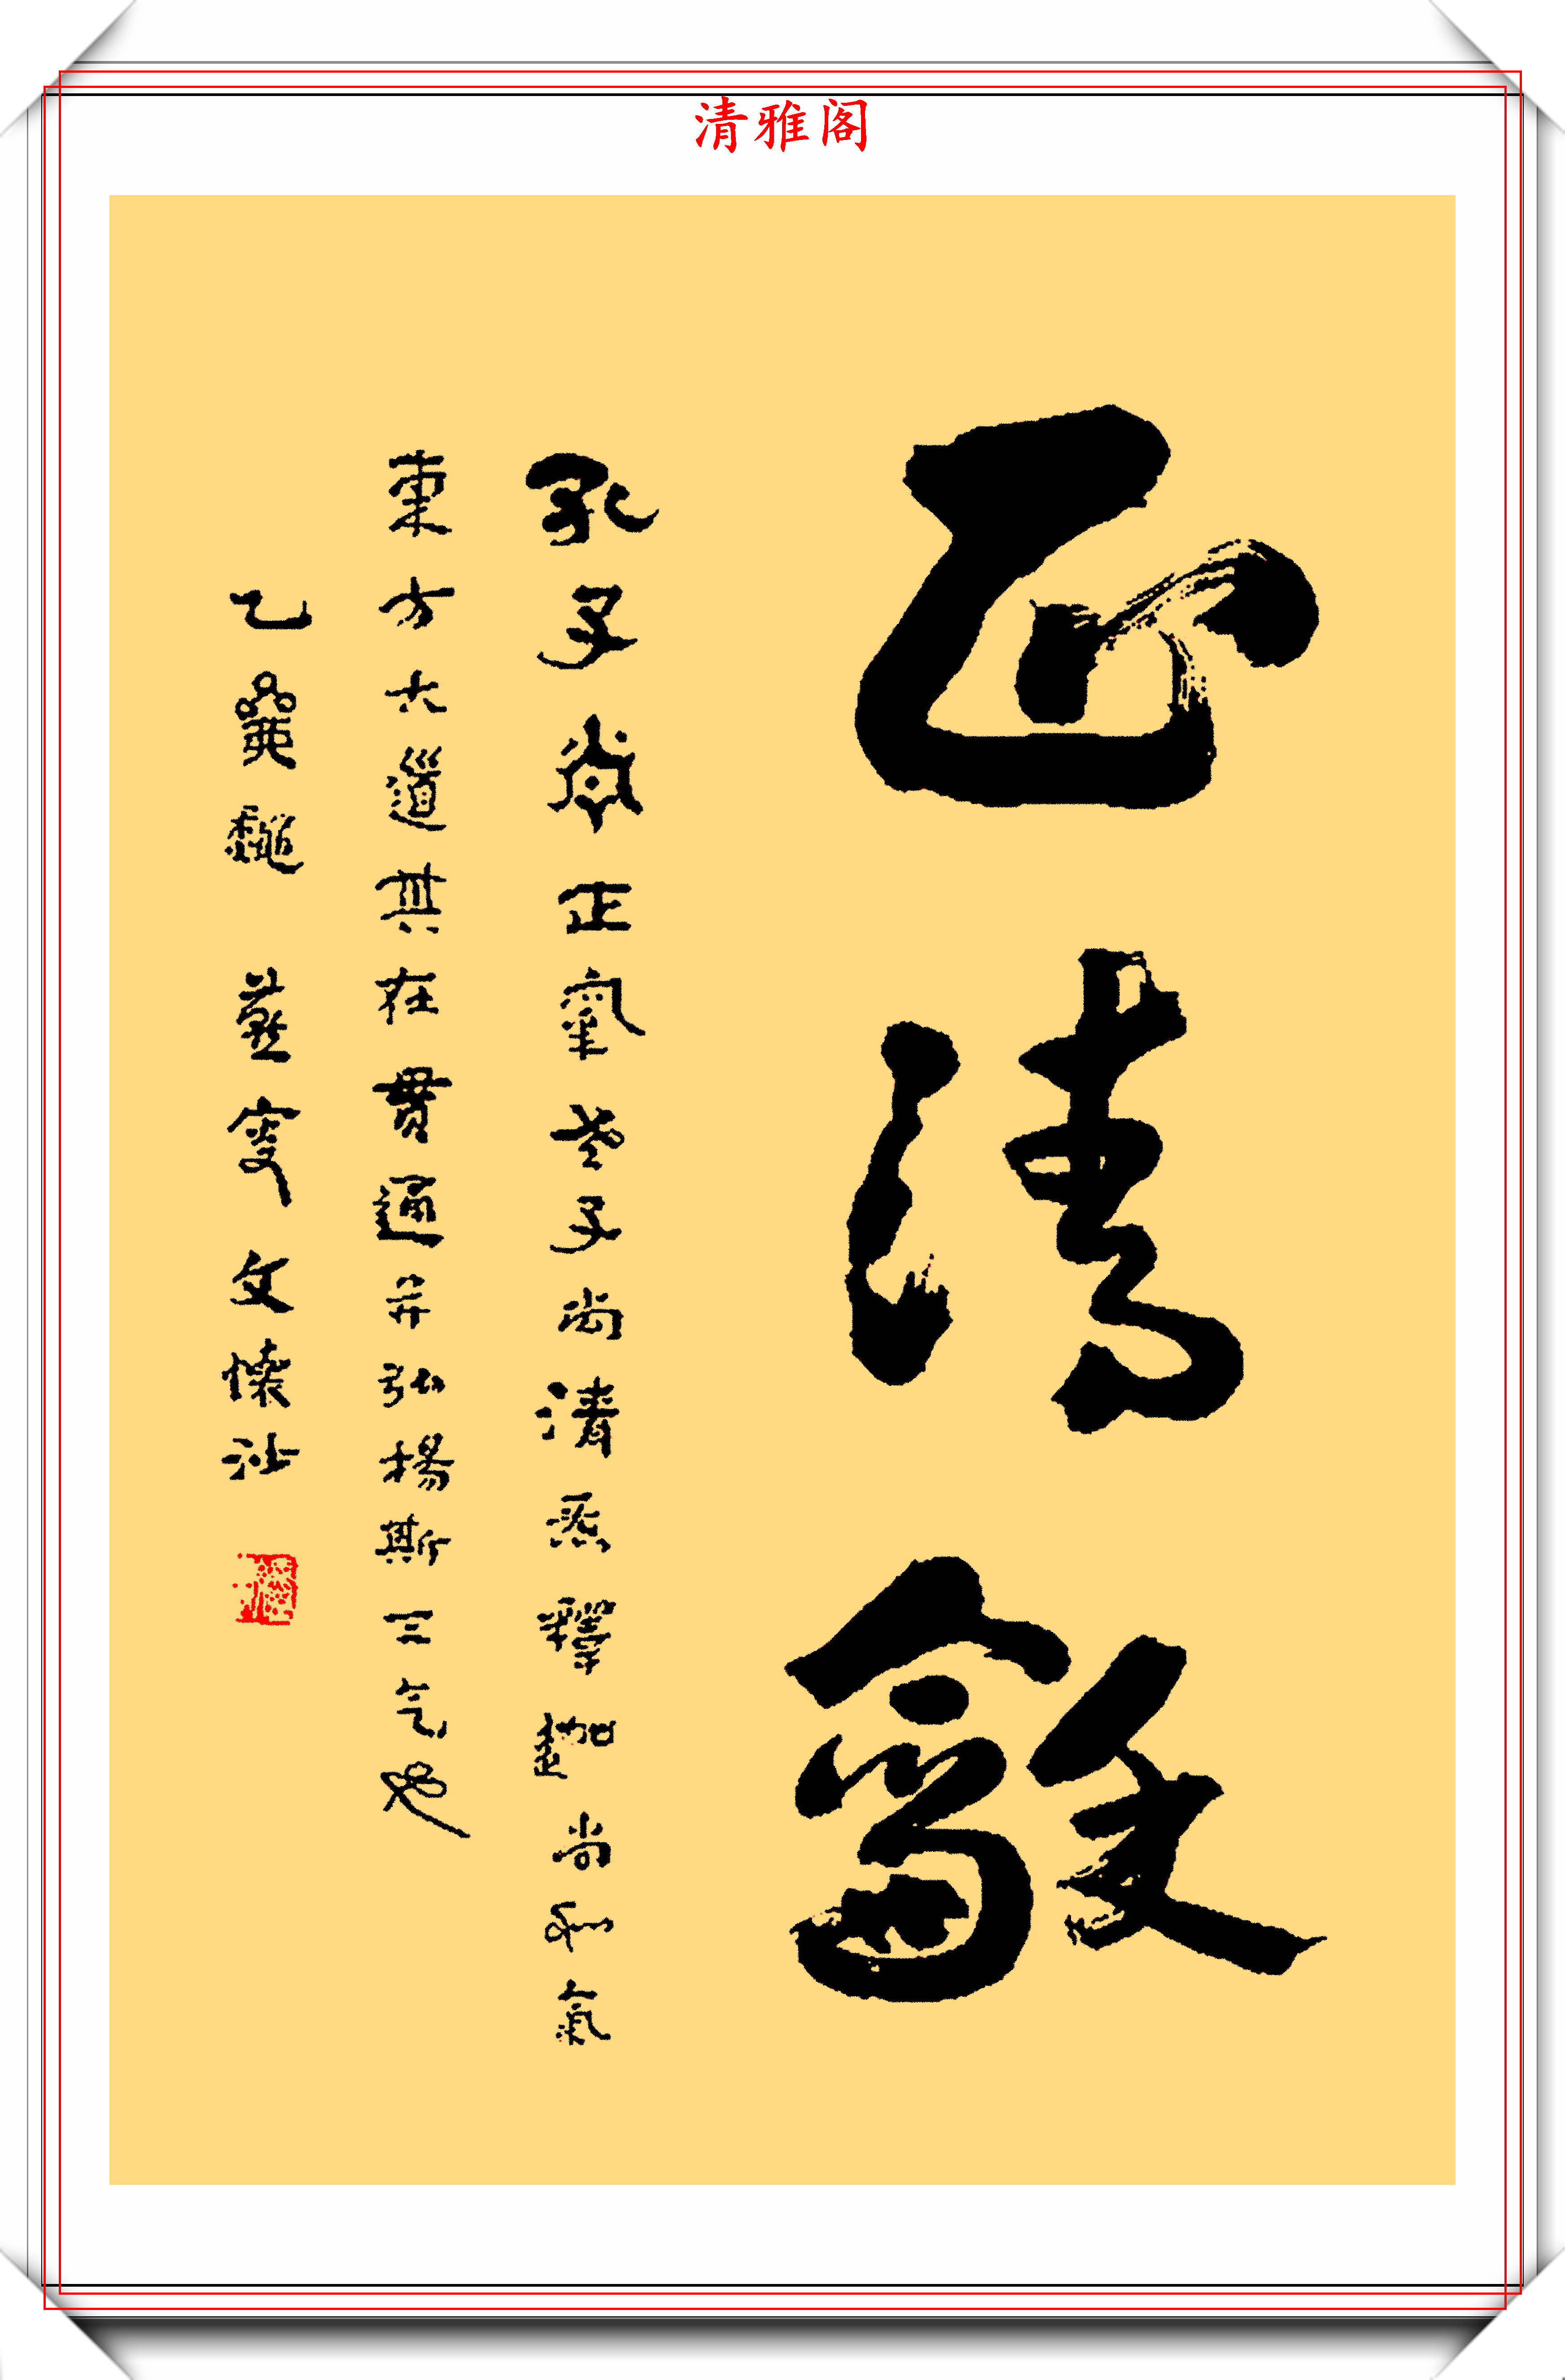 清雅阁
正清龢
孔子尚正氣老子尚清炁釋迦尚和氣
東方大道其在貫通并弘揚斯三气也
乙 龝 燕叟文懷沙